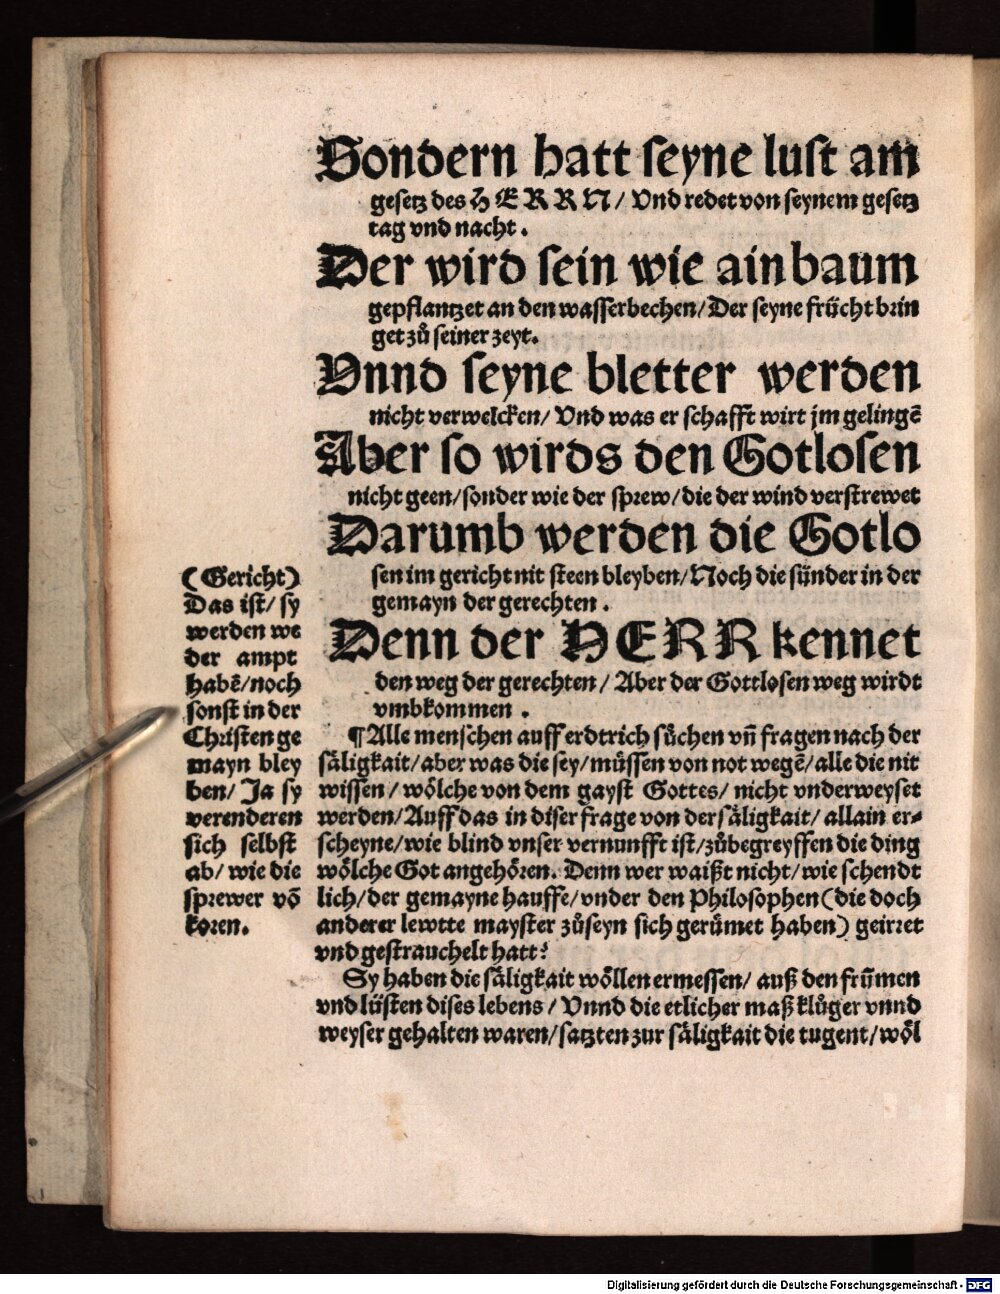 Sondern hatt seyne lust am
gesetz des HERRN/ Vnd redet von seynem gesetz
tag vnd nacht.
Der wird sein wie ain baum
gepflantzet an den wasserbechen/ Der seyne frücht brin
get zů seiner zeyt.
Vnnd seyne bletter werden
nicht verwelcken/ Vnd was er schafft wirt jm gelingē
Aber so wirds den Gotlosen
nicht geen/ sonder wie der sprew/ die der wind verstrewet
Darumb werden die Gotlo
sen im gericht nit steen bleyben/ Noch die sünder in der
gemayn der gerechten.
Denn der HERR kennet
den weg der gerechten/ Aber der Gottlosen weg wirdt
vmbkommen.
(Gericht)
Das ist/ sy
werden we
der ampt
habē/ noch
sonst in der
Christen ge
mayn bley
ben/ Ja sy
verenderen
sich selbst
ab/ wie die
sprewer vō
koren.
¶ Alle menschen auff erdtrich sůchen vñ fragen nach der
säligkait/ aber was die sey/ müssen von not wegē/ alle die nit
wissen/ wölche von dem gayst Gottes/ nicht vnderweyset
werden/ Auff das in diser frage von der säligkait/ allain er⸗
scheyne/ wie blind vnser vernunfft ist/ zůbegreyffen die ding
wölche Got angehören. Denn wer waißt nicht/ wie schendt
lich/ der gemayne hauffe/ vnder den Philosophen (die doch
anderer lewtte mayster zůseyn sich gerümet haben) geirret
vnd gestrauchelt hatt?
Sy haben die säligkait wöllen ermessen/ auß den frūmen
vnd lüsten dises lebens/ Vnnd die etlicher maß klůger vnnd
weyser gehalten waren/ satzten zur säligkait die tugent/ wöl
Digitalisierung gefördert durch die Deutsche Forschungsgemeinschaft - DFG